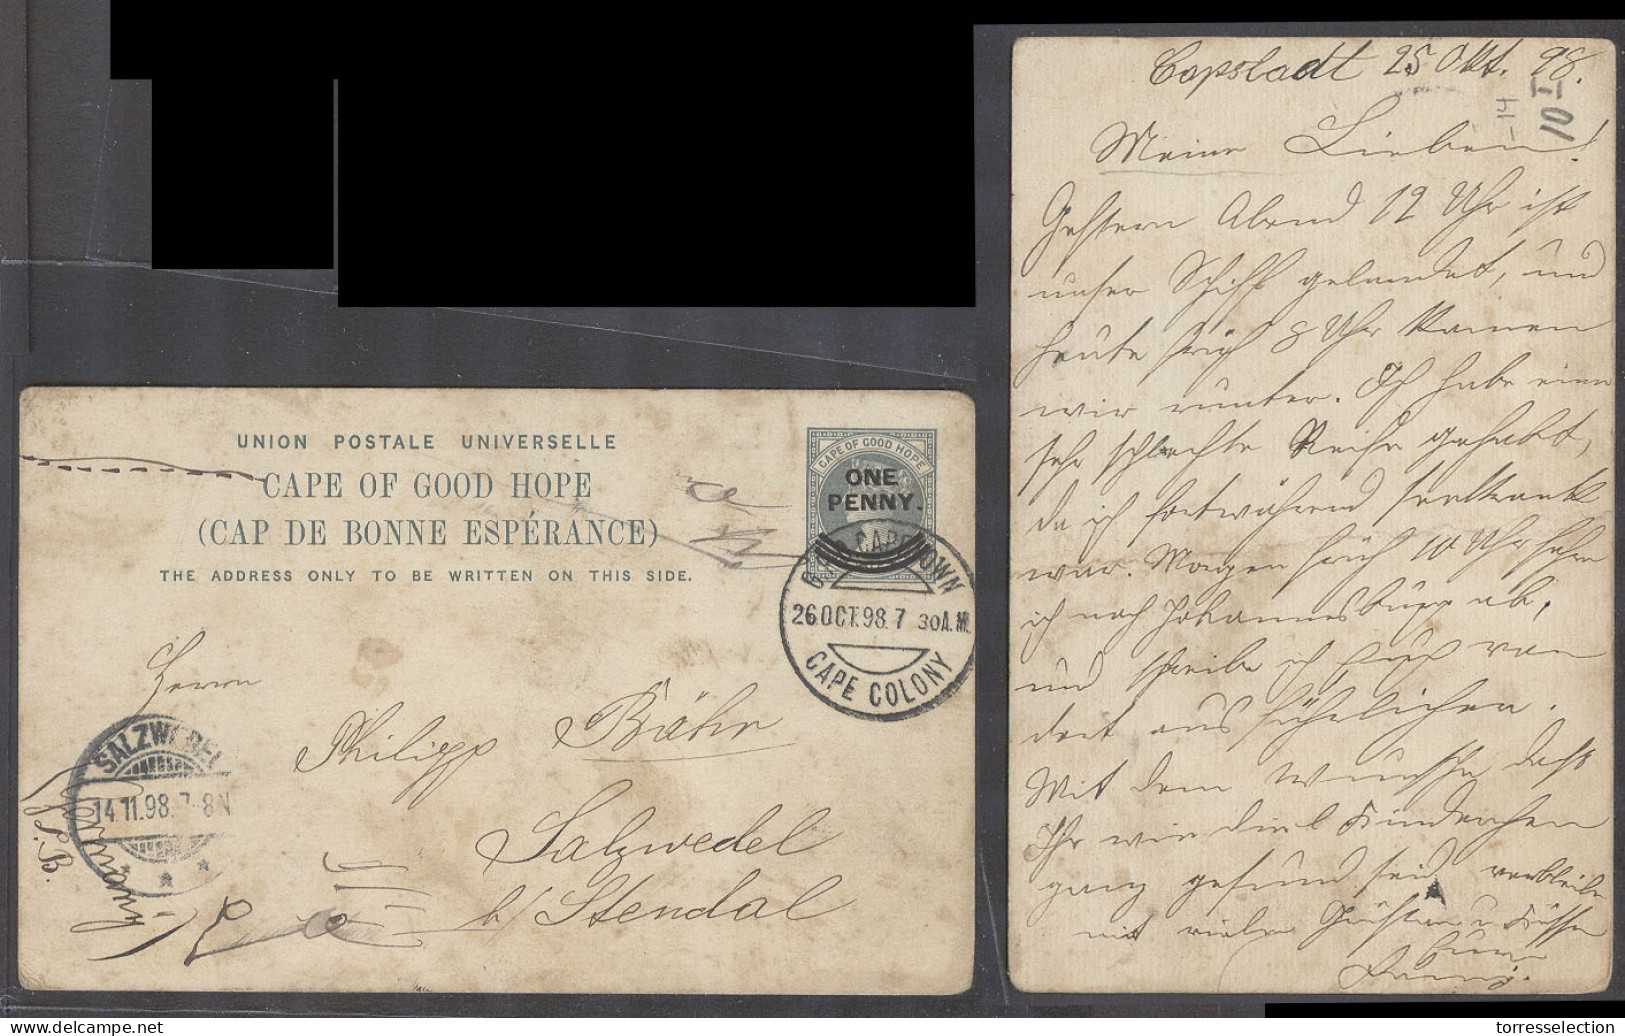 UNION POSTALE UNIVERSELLE
CAPE OF GOOD HOPE
(CAP DE BONNE ESPÉRANCE)
THE ADDRESS ONLY TO BE WRITTEN ON THIS SIDE.
CAPE OF GOOD HOPE
ONE
PENNY.
CAPETOWN
26 OCT. 98. 7 30 A.M.
CAPE COLONY
Herrn
Philipp Bähr
Salzwedel
b/ Stendal
SALZWEDEL
14.11.98. 7-8N
Germany
Capstadt 25 Okt. 98.
Meine Lieben!
Gestern Abend 12 Uhr ist
unser Schiff gelandet, und
heute früh 8 Uhr kamen
wir runter. Ich habe eine
sehr schlechte Reise gehabt,
da ich fortwährend seekrank
war. Morgen früh 10 Uhr fahre
ich nach Johannesburg ab,
und schreibe ich Euch von
dort ausführlicher.
Mit dem Wunsche, daß
Ihr wie die l. Kinderchen
ganz gesund seid verbleibe
mit vielen Grüßen u Küssen
Euer
torresselection